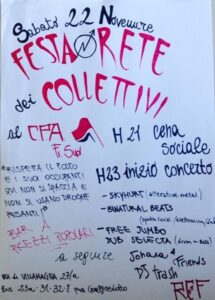 Sabato 22 Novembre
FESTA RETE
dei COLLETTIVI
al CPA
Fi Sud
H 21 cena
sociale
H23 inizio concerto
"RISPETTA IL POSTO
E I SUOI OCCUPANTI
QUI NON SI SPACCIA E
NON SI USANO DROGHE
PESANTI!"
- SKYHURT (alternative metal)
- BINATURAL BEATS
- FREE JUMBO
DUB SELECTA (drum n bass)
BAR A
PREZZI POPOLARI
a seguire
Johana & Friends
DJ trash
Via di VILLAMAGNA, 27/a
BUS 23a-31-32-8
REF